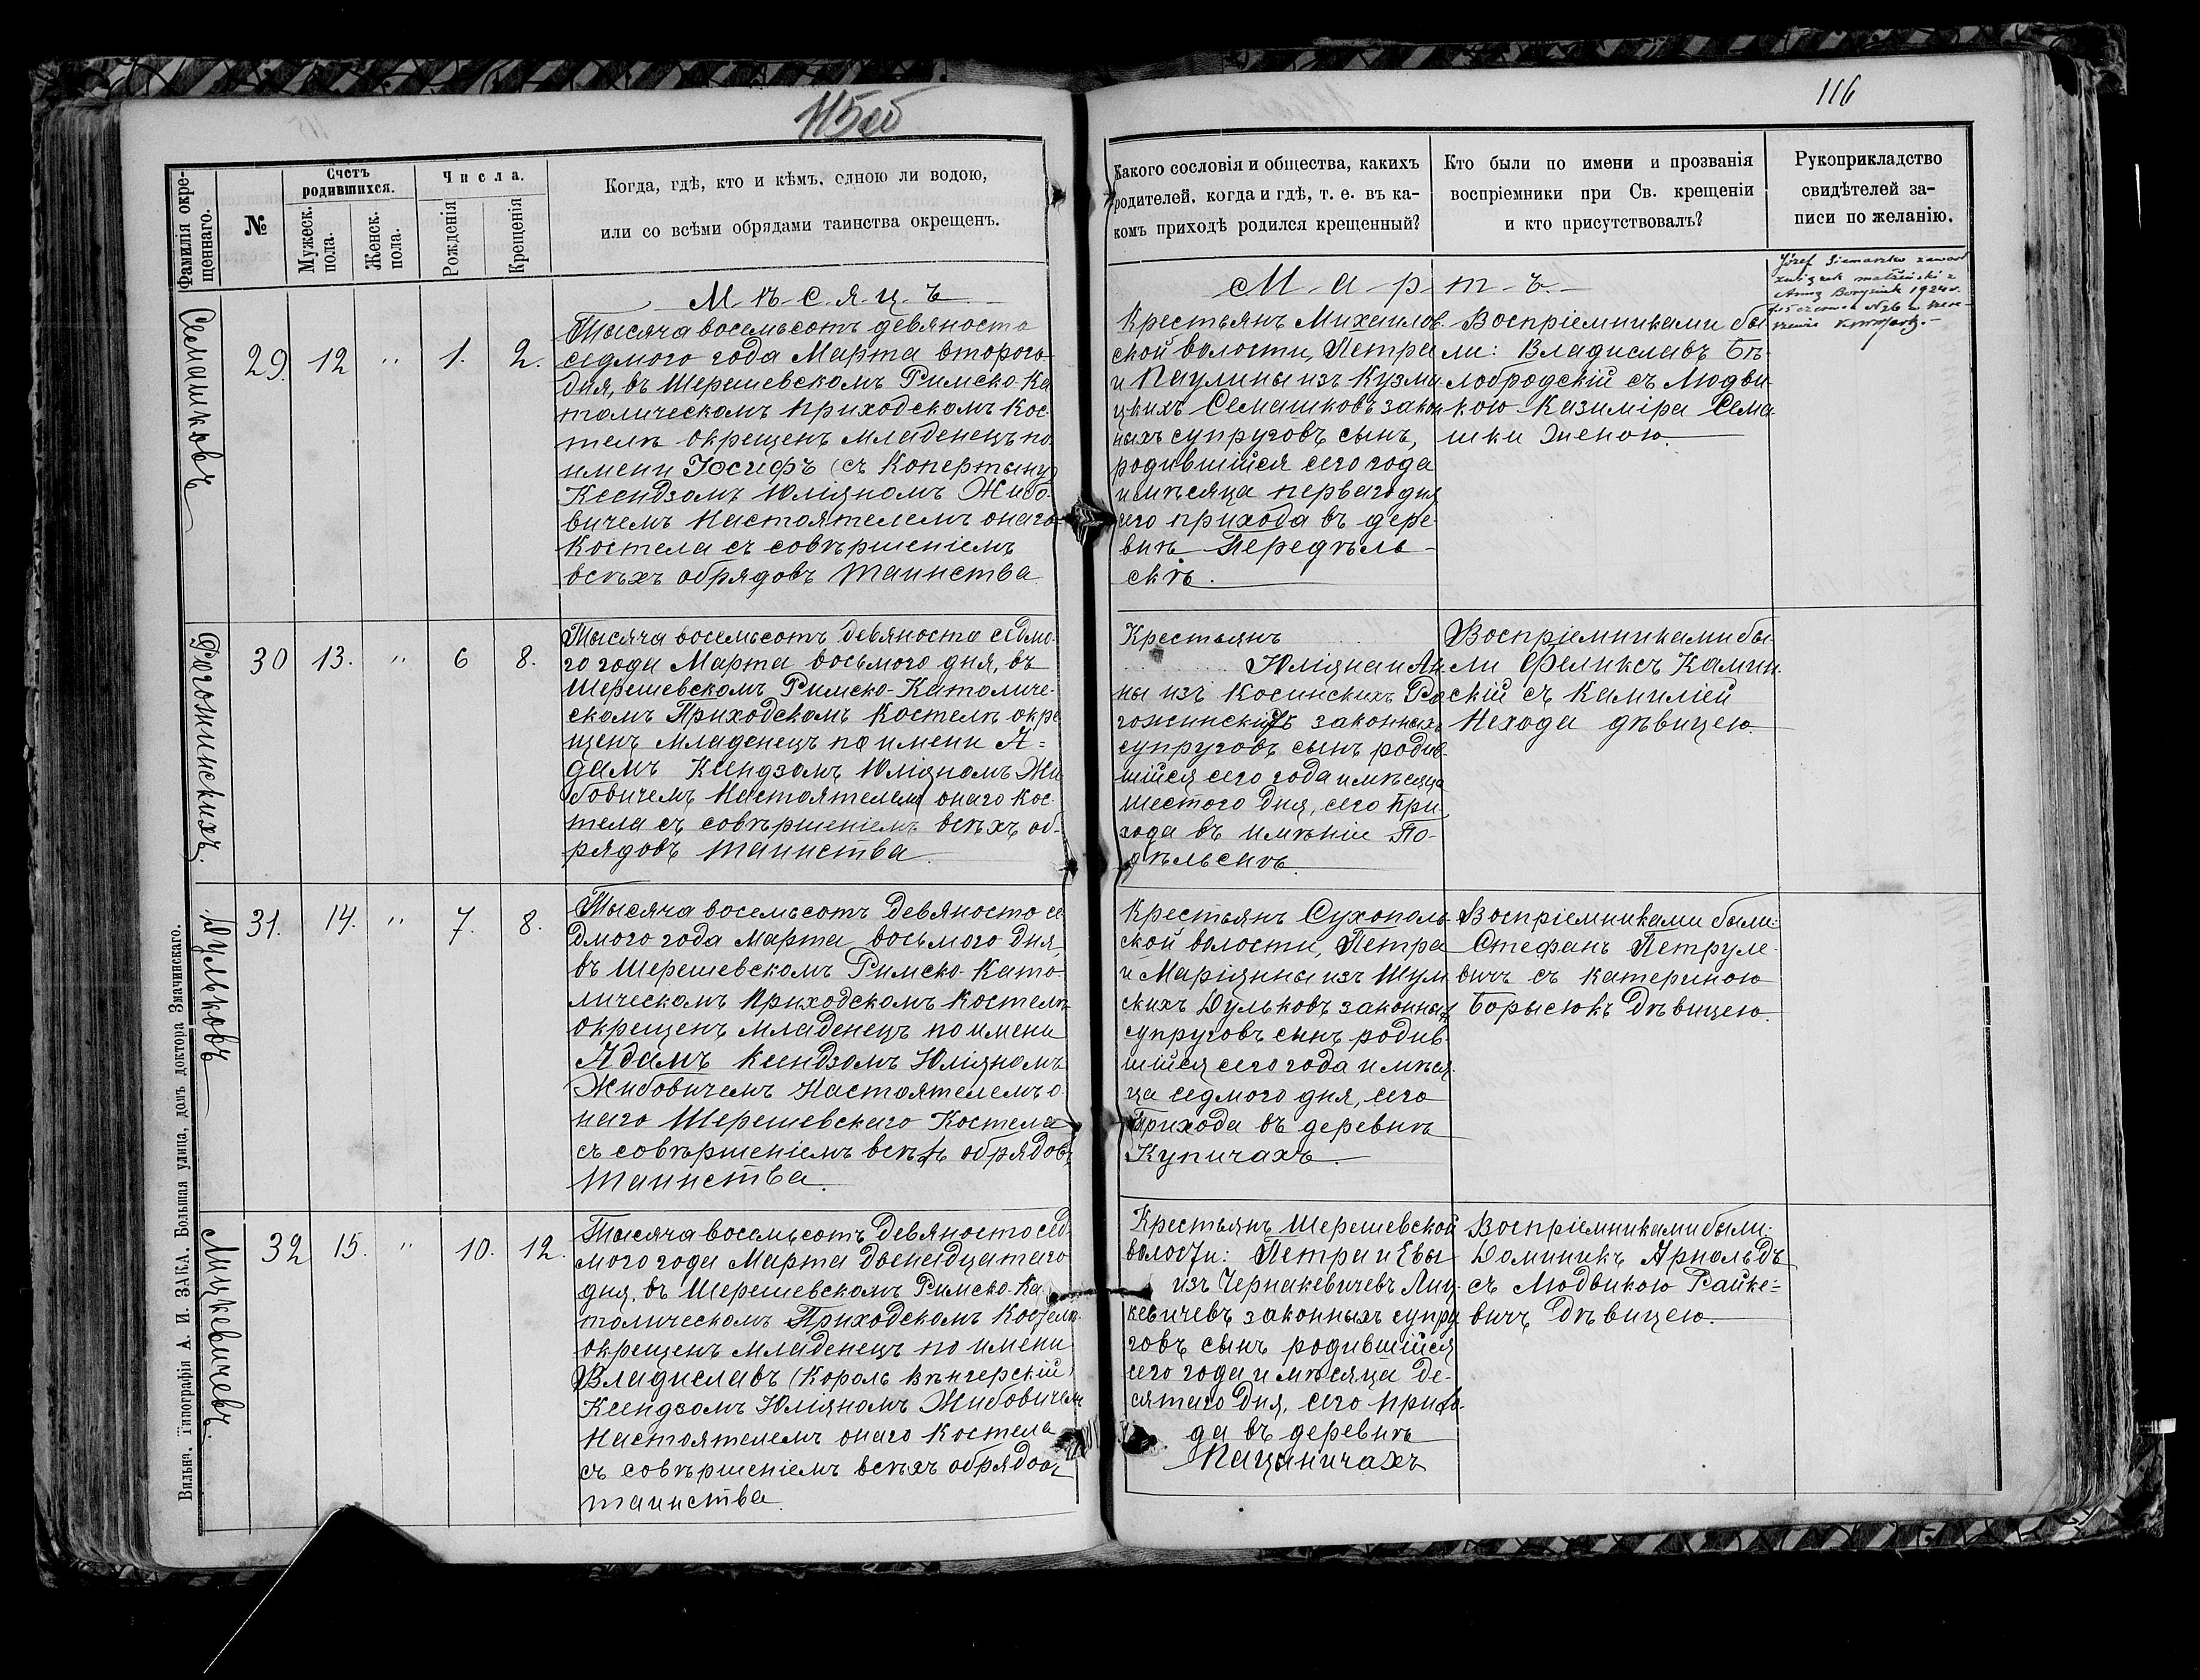 115 об
116
Фамилія окре-
щеннаго.
№
Счетъ
родившихся.
Мужеск.
пола.
Женск.
пола.
Числа.
Рожденія
Крещенія
Когда, гдѣ, кто и кѣмъ, одною ли водою,
или со всѣми обрядами таинства окрещенъ.
Какого сословія и общества, какихъ
родителей, когда и гдѣ, т. е. въ ка-
комъ приходѣ родился крещенный?
Кто были по имени и прозванія
воспріемники при Св. крещеніи
и кто присутствовалъ?
Рукоприкладство
свидѣтелей за-
писи по желанію.
М-ѣ-с-я-ц-ъ
М-а-р-т-ъ.
Семашковъ
29. 12 " 1. 2.
Тысяча восемьсотъ девяносто
седмого года Марта второго
дня, въ Шерешевскомъ Римско-Ка
толическомъ приходскомъ Кос-
телѣ окрещенъ младенецъ по
имени Іосифъ (съ Копертыну)
Ксендзомъ Юліяномъ Жибо-
вичемъ Настоятелемъ онаго
Костела съ совѣршеніемъ
всѣхъ обрядовъ таинства.
Крестьянъ Михаилов-
ской волости, Петра
и Паулины изъ Кузми-
цкихъ Семашковъ закон-
ныхъ супруговъ сынъ,
родившійся сего года
и мѣсяца перваго дня
сего прихода въ дере-
внѣ Передѣль-
скѣ.
Воспріемниками бы-
ли: Владиславъ Бѣ-
лобродскій съ Людви-
кою Казиміра Сема-
шки женою.
Józef Siemaszko zawarł
związek małżeński z
Anną Borysiuk 1924 r.
15 czerwca № 26 w
Фогожинскихъ.
30 13. " 6 8.
Тысяча восемьсотъ девяносто седмо-
го года Марта восьмого дня, въ
Шерешевскомъ Римско-Католиче-
скомъ Приходскомъ Костелѣ окре
щенъ младенецъ по имени А-
дамъ Ксендзомъ Юліяномъ Жи
бовичемъ Настоятелемъ онаго Кос-
тела съ совѣршеніемъ всѣхъ об-
рядовъ таинства.
Крестьянъ
Юліяна и Ан-
ны изъ Косинскихъ Ро
гожинскихъ законныхъ
супруговъ сынъ родив-
шійся сего года и мѣсяца
шестого дня, сего при-
хода въ имѣніи По-
дѣльскѣ.
Воспріемниками бы-
ли Феликсъ Камин-
скій съ Камиліей
Нехода дѣвицею.
Дульковъ
31. 14. " 7. 8.
Тысяча восемьсотъ девяносто се
дмого года Марта восьмого дня
въ Шерешевскомъ Римско-Като-
лическомъ приходскомъ Костелѣ
окрещенъ младенецъ по имени
Адамъ Ксендзомъ Юліяномъ
Жибовичемъ Настоятелемъ о-
наго Шерешевскаго Костела
съ совѣршеніемъ всѣхъ обрядовъ
таинства.
Крестьянъ Сухополь-
ской волости, Петра
и Маріянны изъ Шум-
скихъ Дульковъ законныхъ
супруговъ сынъ родив-
шійся сего года и мѣся-
ца седмого дня, сего
Прихода въ деревнѣ
Купичахъ.
Воспріемниками были:
Стефанъ Петруле-
вичъ съ Катериною
Борысюкъ дѣвицею.
Лицкевичевъ.
32 15. " 10. 12.
Тысяча восемьсотъ девяносто сед-
мого года Марта двенадцатаго
дня, въ Шерешевскомъ Римско-Ка-
толическомъ Приходскомъ Костелѣ
окрещенъ младенецъ по имени
Владиславъ (Король вѣнгерскій)
Ксендзомъ Юліяномъ Жибовичем
Настоятелемъ онаго Костела
съ совѣршеніемъ всѣхъ обрядовъ
таинства.
Крестьянъ Шерешевской
волости: Петра и Евы
изъ Чернакевичевъ Лиц-
кевичевъ законныхъ супру
говъ сынъ родившійся
сего года и мѣсяца де-
сятаго дня, сего прихо-
да въ деревнѣ
Пацыничахъ
Воспріемниками были:
Доминикъ Арнольдъ
съ Людвикою Райке-
вичъ дѣвицею.
Вильна, Типографія А. И. ЗАКА. Большая улица, домъ доктора Змачинскаго.